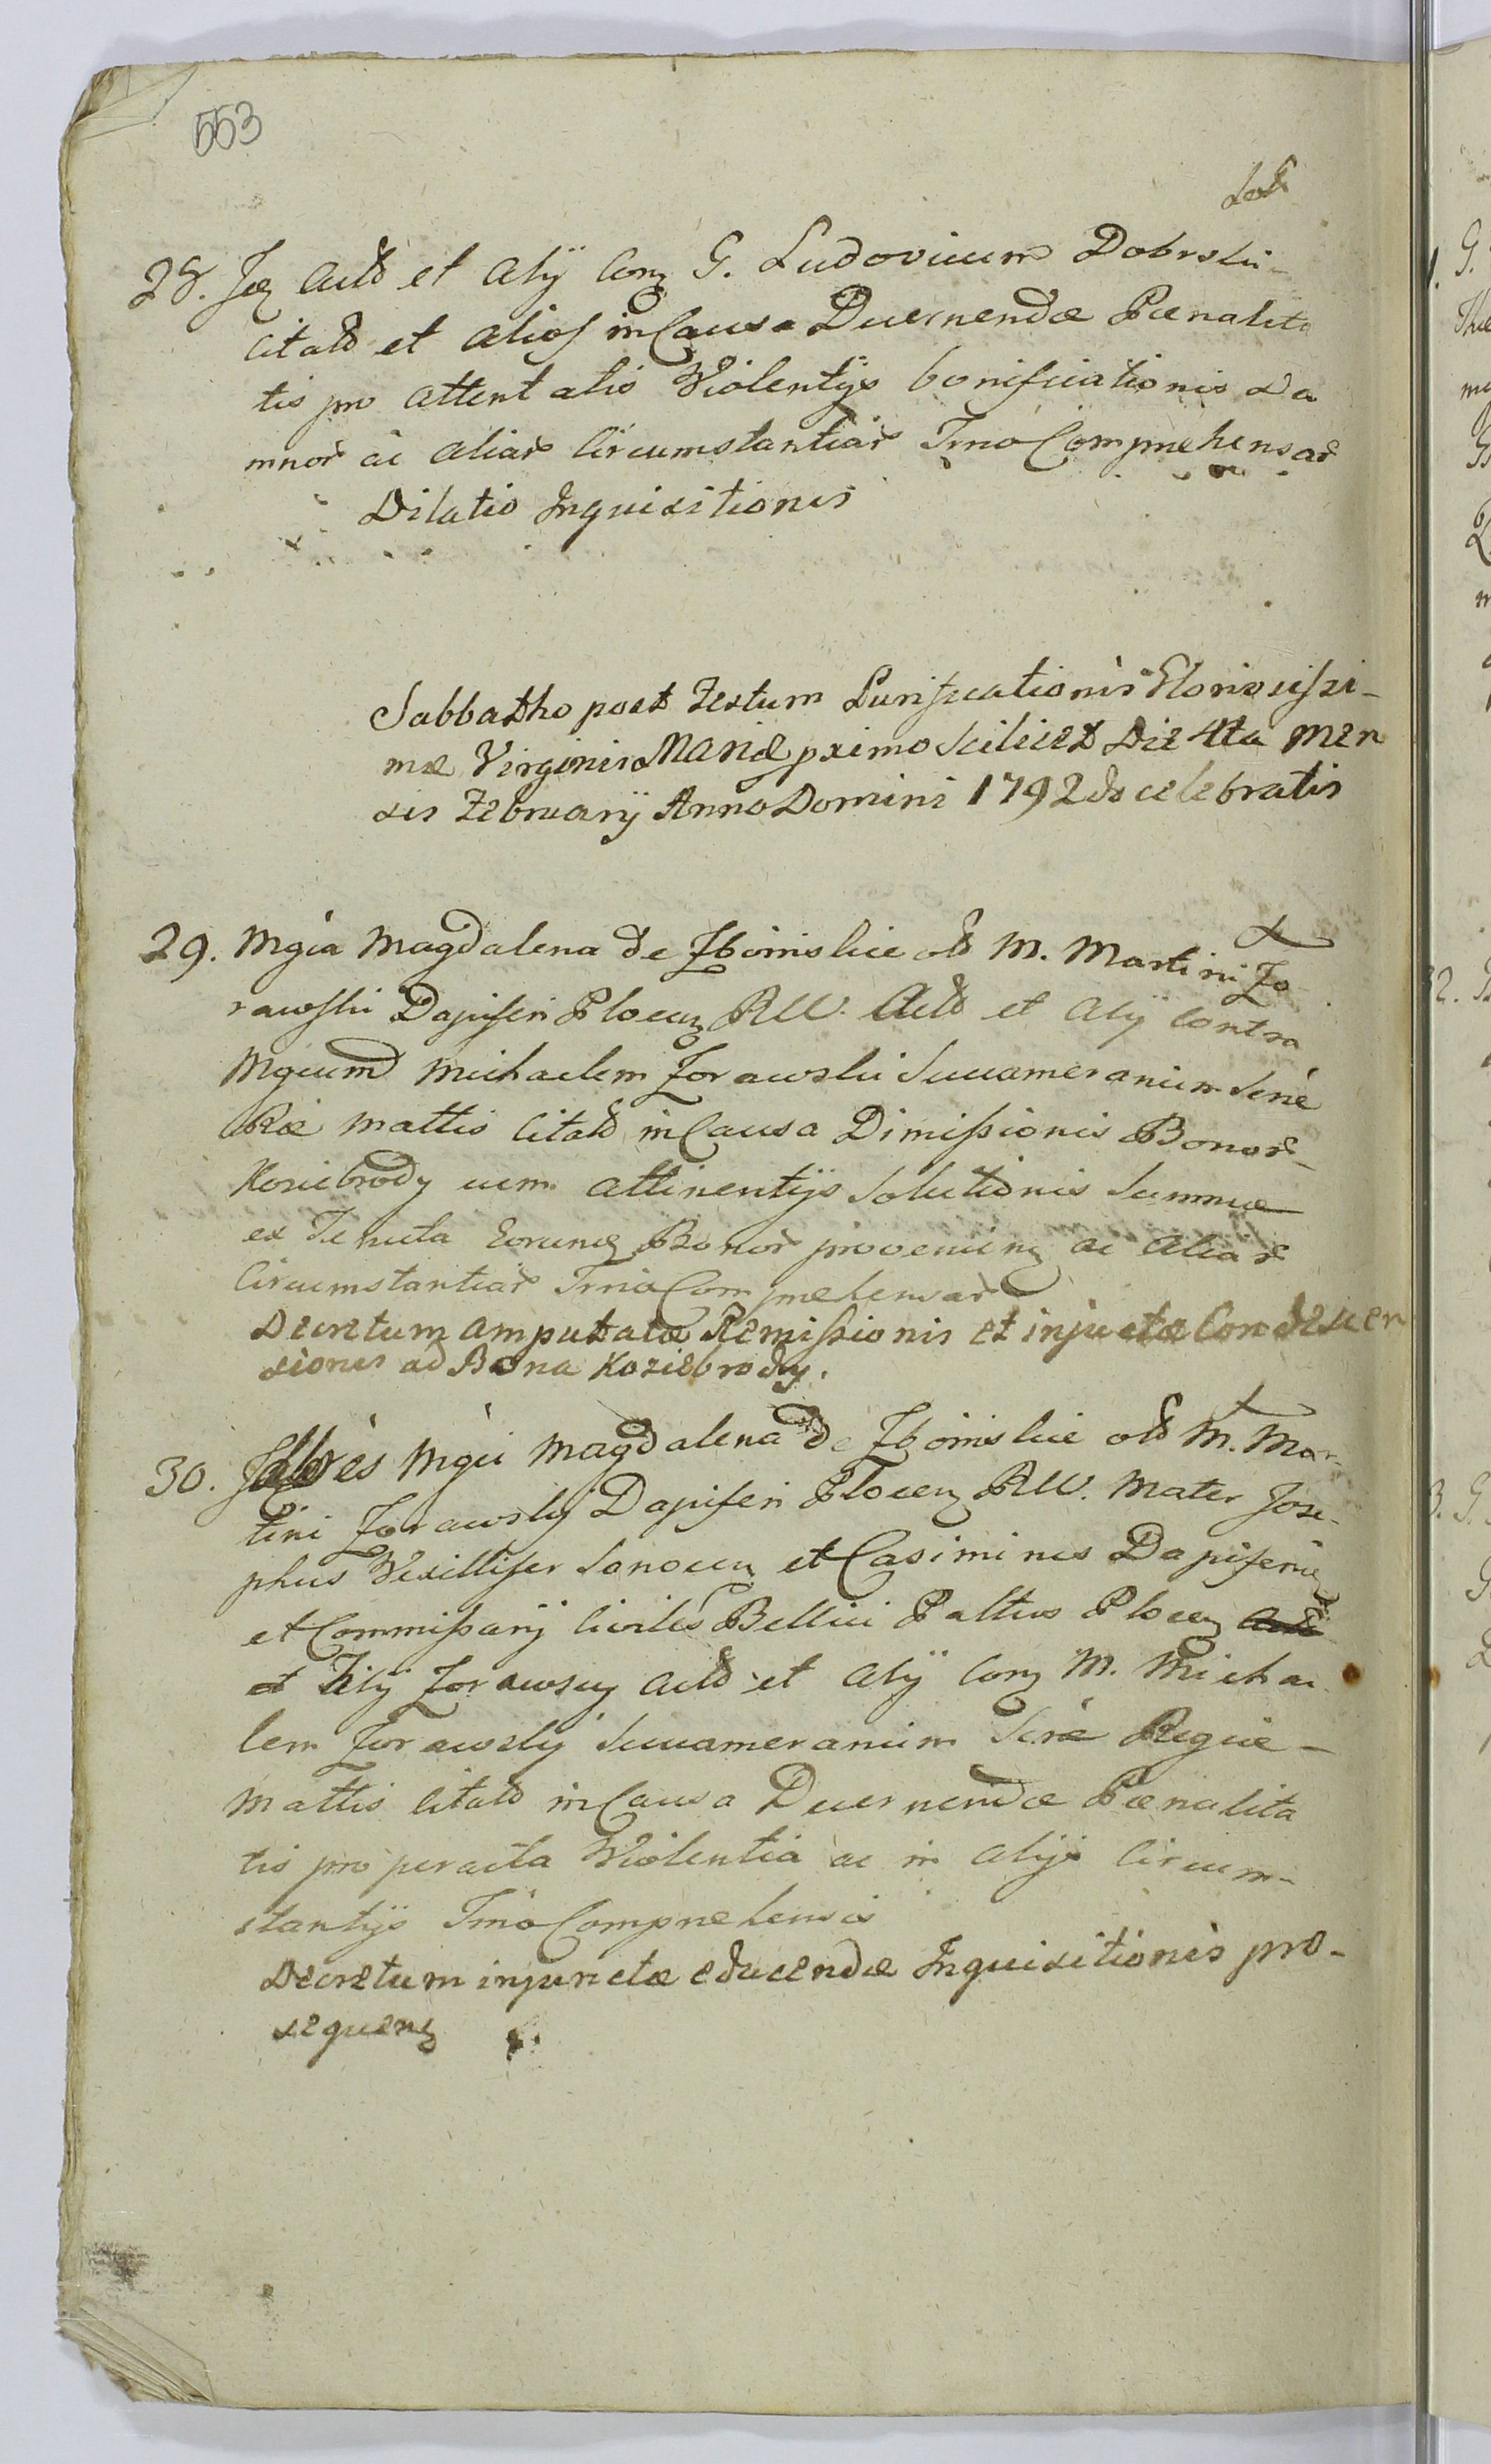 553
28. Actd et Alij Con G. Ludovicum Dobrski-
Citatd et Alios in Causa Decernendæ Pænalita
tis pro attentatis Violentijs bonificationis Da
mnor ac aliar Circumstantiar Tmo Comprehensar
Dilatio Inquisitionis
Sabbatho post Festum Purificationis Gloriosissi-
mæ Virginis Mariæ pximo scilicet Die 4ta Men
sis Februarij Anno Domini 1792do celebratis
29. Mgca Magdalena de Zboinskie od M. Martini Zo
rawski Dapiferi Plocen Actd et Alij Contra
Mgcum Michaelem Zorawski Succameranium Sere
Rie Mattis Citatd in Causa Dimissionis Bonor-
Koziebrody cum attinentijs Solutionis Summæ
ex Tenuta Eorund Bonor provenien ac aliar
Circumstantiar Tmo Comprehensar
Decretum amputatæ Remissionis et injuctæ Condescen
sionis ad Bona Koziebrody.
30. Mgci Magdalena de Zboinskie od M. Mar-
tini Zorawskij Dapiferi Plocen Mater Jose-
phus Vexillifer Sanocen et Casimirus Dapiferi
et Commissarij Civiles Bellici Paltus Plocen
et Filij Zorawscy Actd et Alij Con M. Michae
lem Zorawskij Succameranium Sere Regiæ-
Mattis Citatd in Causa Decernendæ Pænalita
tis pro peracta Violentia ac in alijs Circum-
stantijs Tmo Comprehensis
Decretum injunctæ educendæ Inquisitionis pro-
sequen